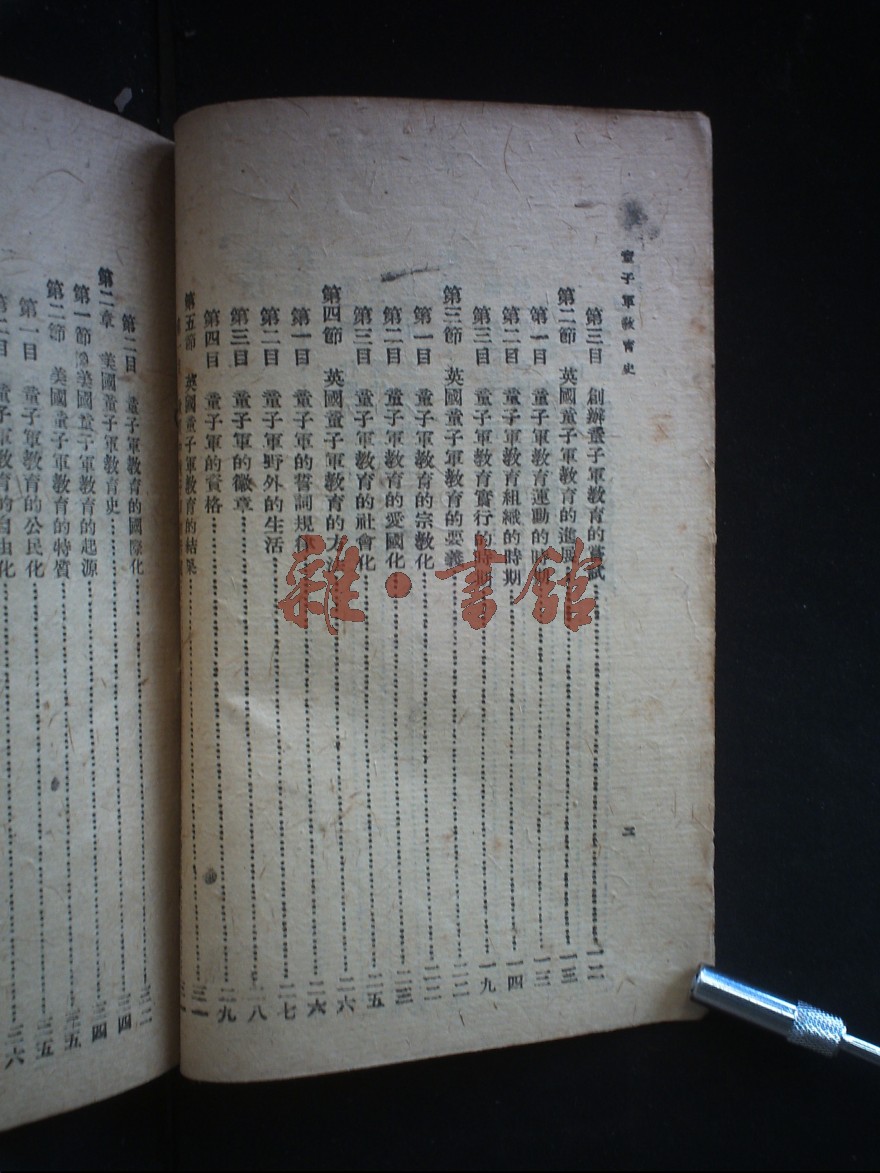 童子軍教育史
二
第三目 創辦童子軍教育的嘗試 一二
第二節 英國童子軍教育的進展 一三
第一目 童子軍教育運動的時期 一三
第二目 童子軍教育組織的時期 一四
第三目 童子軍教育實行的時期 一九
第三節 英國童子軍教育的要義 二二
第一目 童子軍教育的宗教化 二二
第二目 童子軍教育的愛國化 二三
第三目 童子軍教育的社會化 二五
第四節 英國童子軍教育的方法 二六
第一目 童子軍的誓詞規律 二六
第二目 童子軍野外的生活 二七
第三目 童子軍的徽章 二八
第四目 童子軍的資格 二九
第五節 英國童子軍教育的結果 三一
第二目 童子軍教育的國際化 三二
第二章 美國童子軍教育史 三四
第一節 美國童子軍教育的起源 三四
第二節 美國童子軍教育的特質 三五
第一目 童子軍教育的公民化 三五
第二目 童子軍教育的自由化 三六
雜·書館